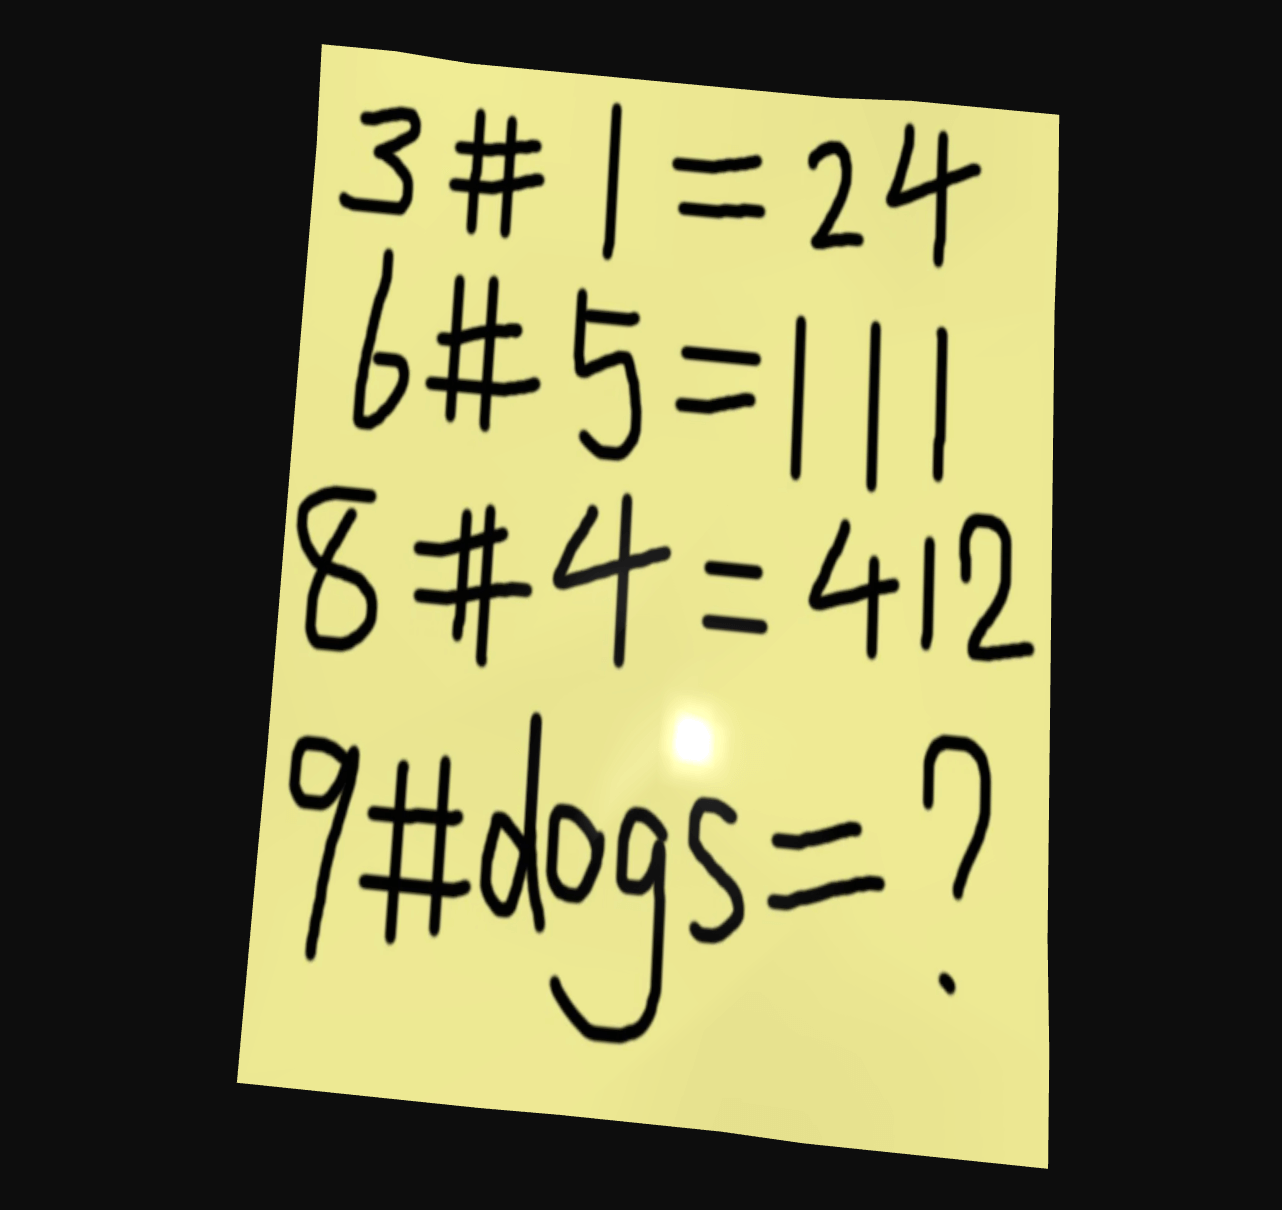 3 # 1 = 24
6 # 5 = 111
8 # 4 = 412
9 # dogs = ?